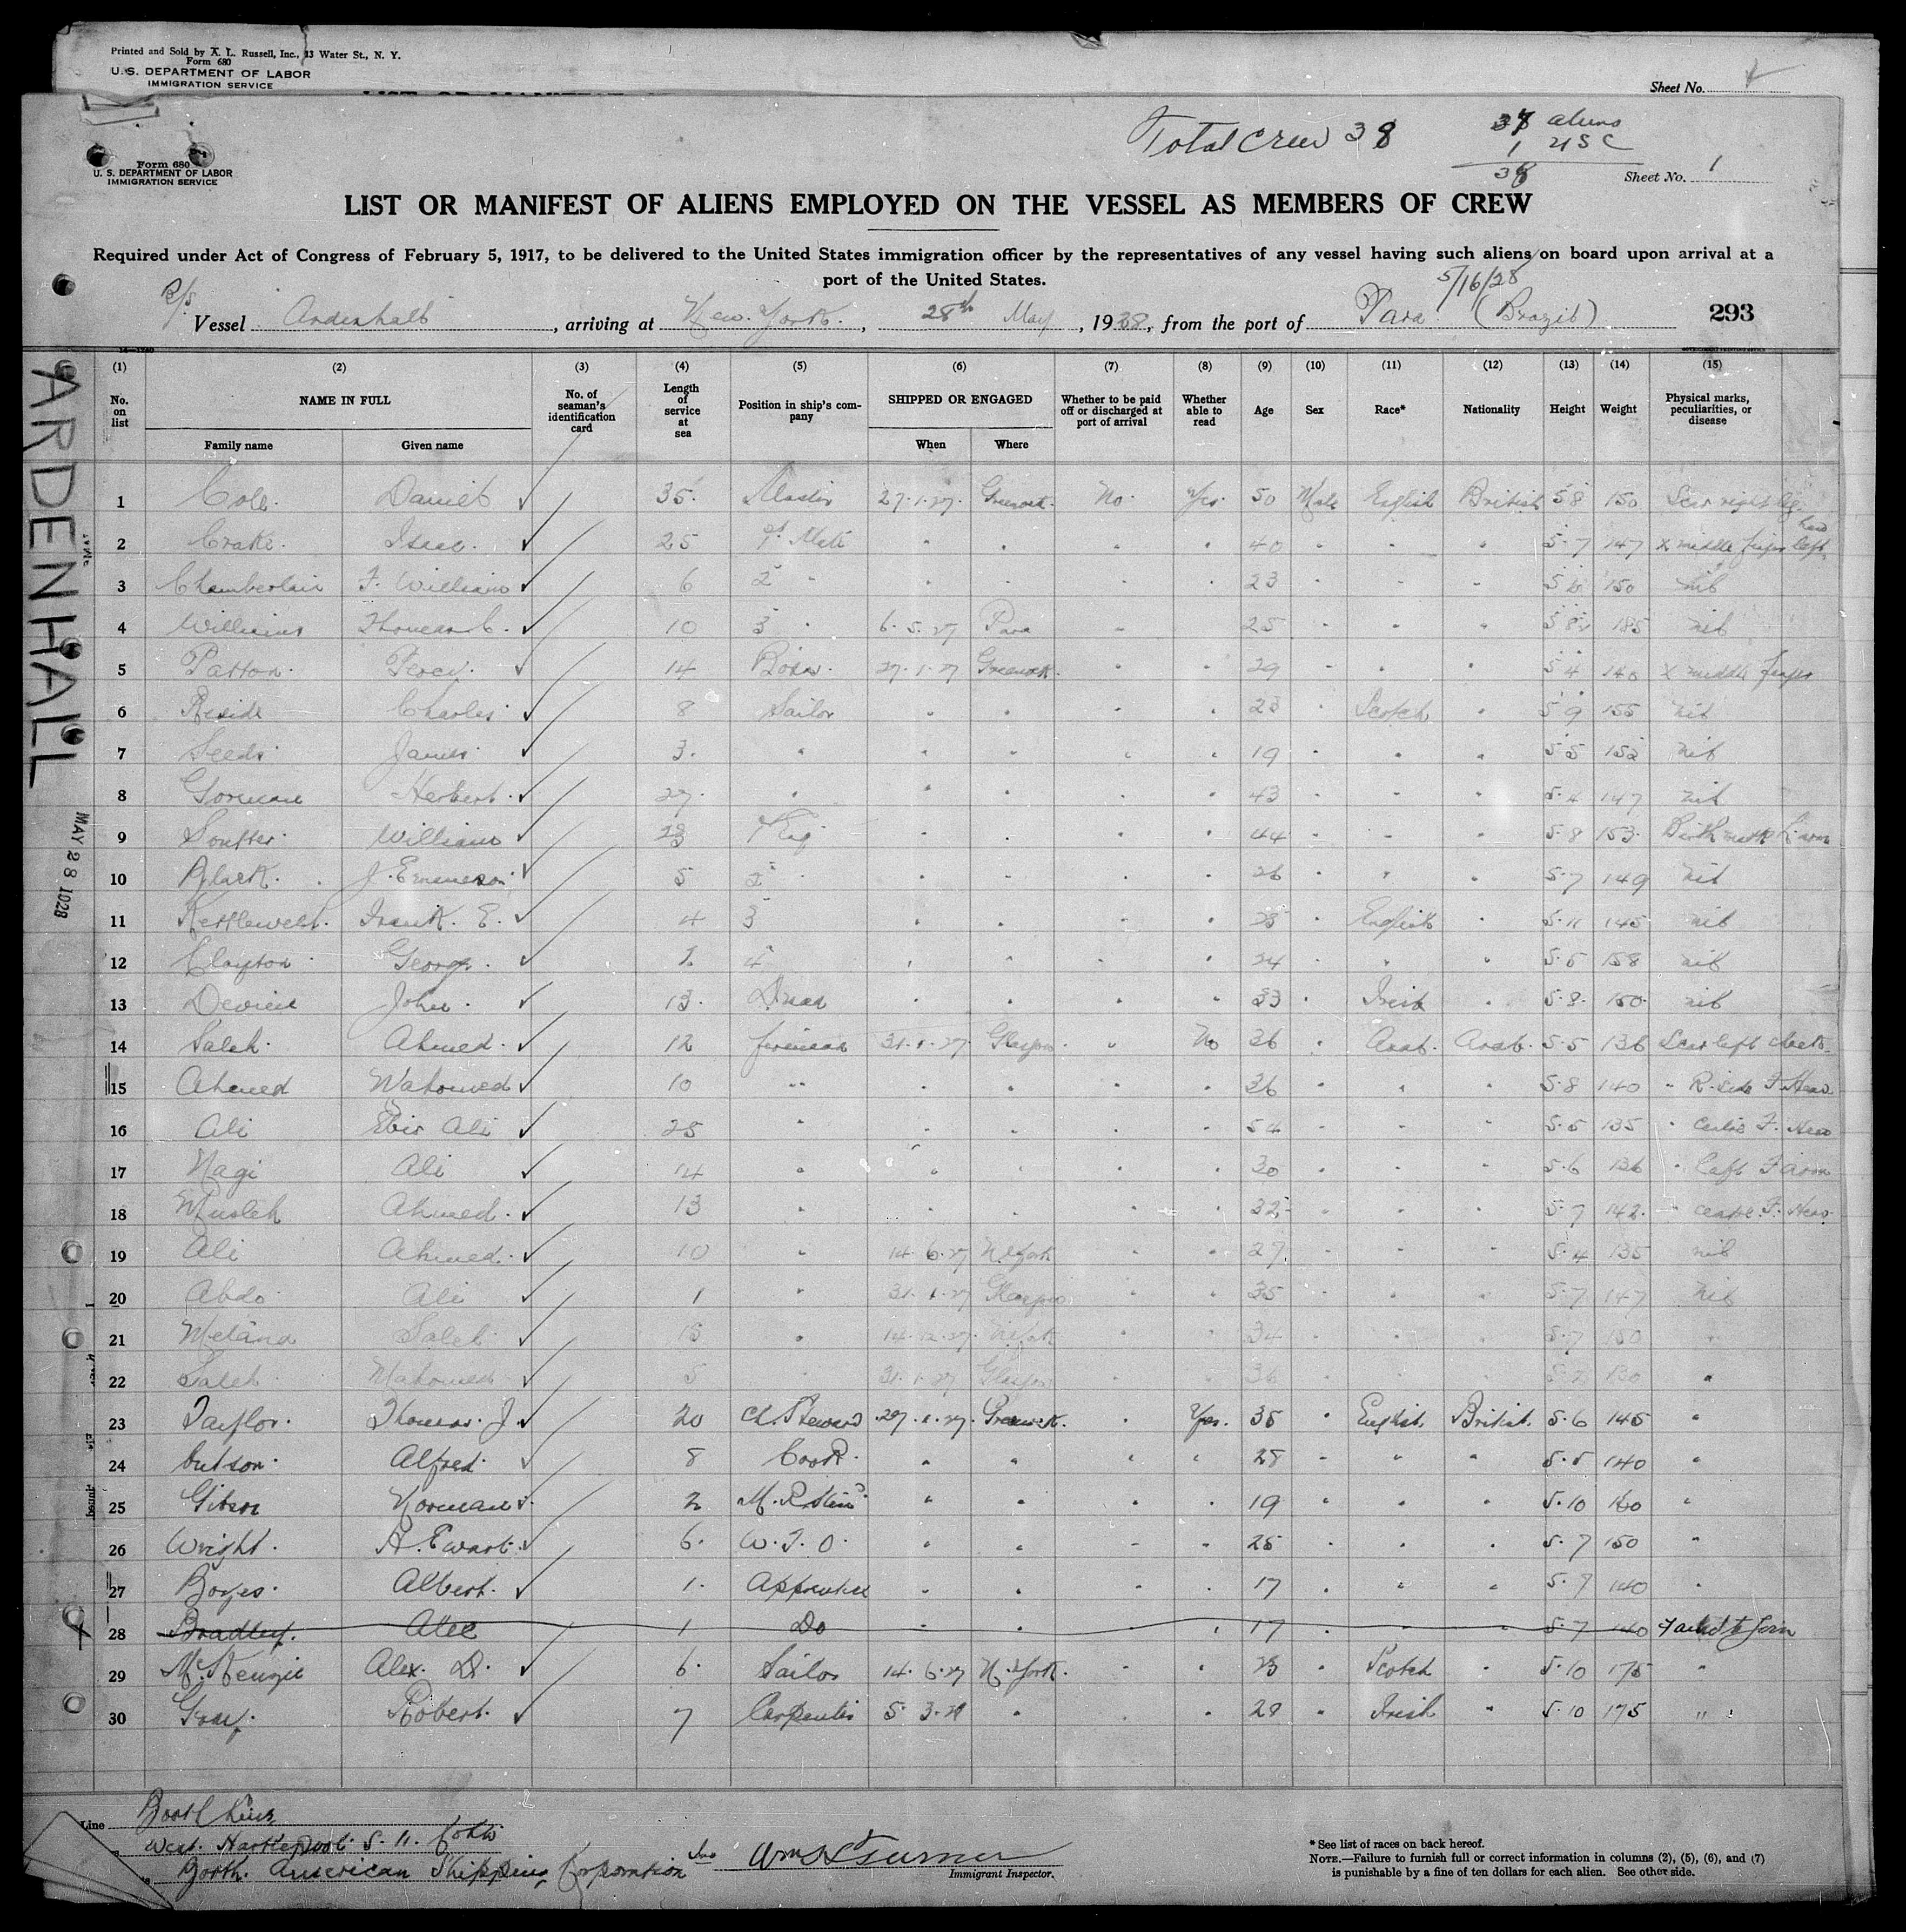 Printed and Sold by A. L. Russell, Inc., 13 Water St., N. Y.
Form 680
U. S. DEPARTMENT OF LABOR
IMMIGRATION SERVICE
Sheet No.
Total Crew 38
aliens
1 USC
38
Form 680
U. S. DEPARTMENT OF LABOR
IMMIGRATION SERVICE
Sheet No. 1
LIST OR MANIFEST OF ALIENS EMPLOYED ON THE VESSEL AS MEMBERS OF CREW
Required under Act of Congress of February 5, 1917, to be delivered to the United States immigration officer by the representatives of any vessel having such aliens on board upon arrival at a
port of the United States.
5/16/28
Vessel Ardenhall, arriving at New York, 28th May, 1928, from the port of Para (Brazil) 293
(1) (2) (3) (4) (5) (6) (7) (8) (9) (10) (11) (12) (13) (14) (15)
No. on list NAME IN FULL Family name Given name No. of seaman's identification card Length of service at sea Position in ship's company SHIPPED OR ENGAGED When Where Whether to be paid off or discharged at port of arrival Whether able to read Age Sex Race* Nationality Height Weight Physical marks, peculiarities, or disease
ARDENHALL
MAY 28 1928
1 Cole. Daniel 35. Master 27.1.27. Greenock. No. Yes 50 Male English British 5 8 150 Scar right leg.
2 Crake. Isaac. 25 1st Mate " " " " 40 " " " 5.7 147 x middle finger left hand
3 Chamberlain F. William 6 2 " " " " " 23 " " " 150 nil
4 Williams Thomas C. 10 3 " 6.5.27 Para " " 25 " " " 185 nil
5 Patton. Percy. 14 Bosn. 27.1.27 Greenock. " " 29 " " " 5 4 140 x middle finger
6 Reside Charles 8 Sailor " " " " " Scotch " 5 9 155 nil
7 Seeds James. 3. " " " " " 19 " " " 5 5 152 nil
8 Gorman Herbert. 27. " " " " " 43 " " " 5.4 147 nil
9 Souter. William 1st Eng " " " " 44 " " " 5.8 153. Birth mark L. arm
10 Black. J. 5 2 " " " " " 26 " " " 5.7 149 nil
11 Kettlewell. Frank. E. 4 3 " " " " " English " 5.11 145 nil
12 Clayton. George. 1. 4 " " " " 24 " " " 5.5 158 nil
13 John. 13. " " " " 33 " Irish " 5.8. 150. nil
14 Saleh. Ahmed. 12 fireman 31.1.27. Glasgow. " No 36 " Arab. Arab. 5.5 136 Scar left cheek.
15 Ahmed Mahomed 10 " " " " " 36 " " " 5.8 140 " R. side F. Head
16 Ali Ali 25 " " " " " 54 " " " 5.5 135 " F. Head
17 Nagi Ali 14 " " " " " 30 " " " 5.6 136 " left F arm
18 Musleh Ahmed. 13 " " " " " 32 " " " 5.7 142. " centre F. Head.
19 Ali Ahmed. 10 " 14.6.27 N. York " " 27. " " " 5.4 135 nil
20 Abdo Ali 1 " 31.1.27 Glasgow " " 35 " " " 5.7 147 nil
21 Saleh 15 " 14.12.27. N. York " " 34 " " " 5.7 150 "
22 Saleh Mahomed. 5 " 31.1.27 Glasgow " " 36 " " " 130 "
23 Taylor. Thomas. J. 20 Ch. Steward 27.1.27. Greenock. " Yes. 35 " English British. 5.6 145 "
24 Cutson. Alfred. 8 Cook. " " " " 28 " " " 5.5 140 "
25 Gibson Norman 2 " " " " 19 " " " 5.10 "
26 Wright. A. Ewart. 6. W. T. O. " " " " 25 " " " 5.7 150 "
27 Boyes. Albert. 1. Apprentice " " " " 17 " " " 5.7 140 "
28 Bradley. Alec 1 Do " " " " 17 " " " 5.7 140 Failed to Join
29 McKenzie Alex. D. 6. Sailor 14.6.27 N. York. " " " Scotch " 5.10 175 "
30 Gray. Robert. 7 Carpenter 5.3.28 " " " 29 " Irish " 5.10 175 "
Line Booth Line
West. Hartlepool S. N. Co Ltd
North American Shipping Corporation Inc
Wm S Turner
Immigrant Inspector.
* See list of races on back hereof.
NOTE.—Failure to furnish full or correct information in columns (2), (5), (6), and (7)
is punishable by a fine of ten dollars for each alien. See other side.